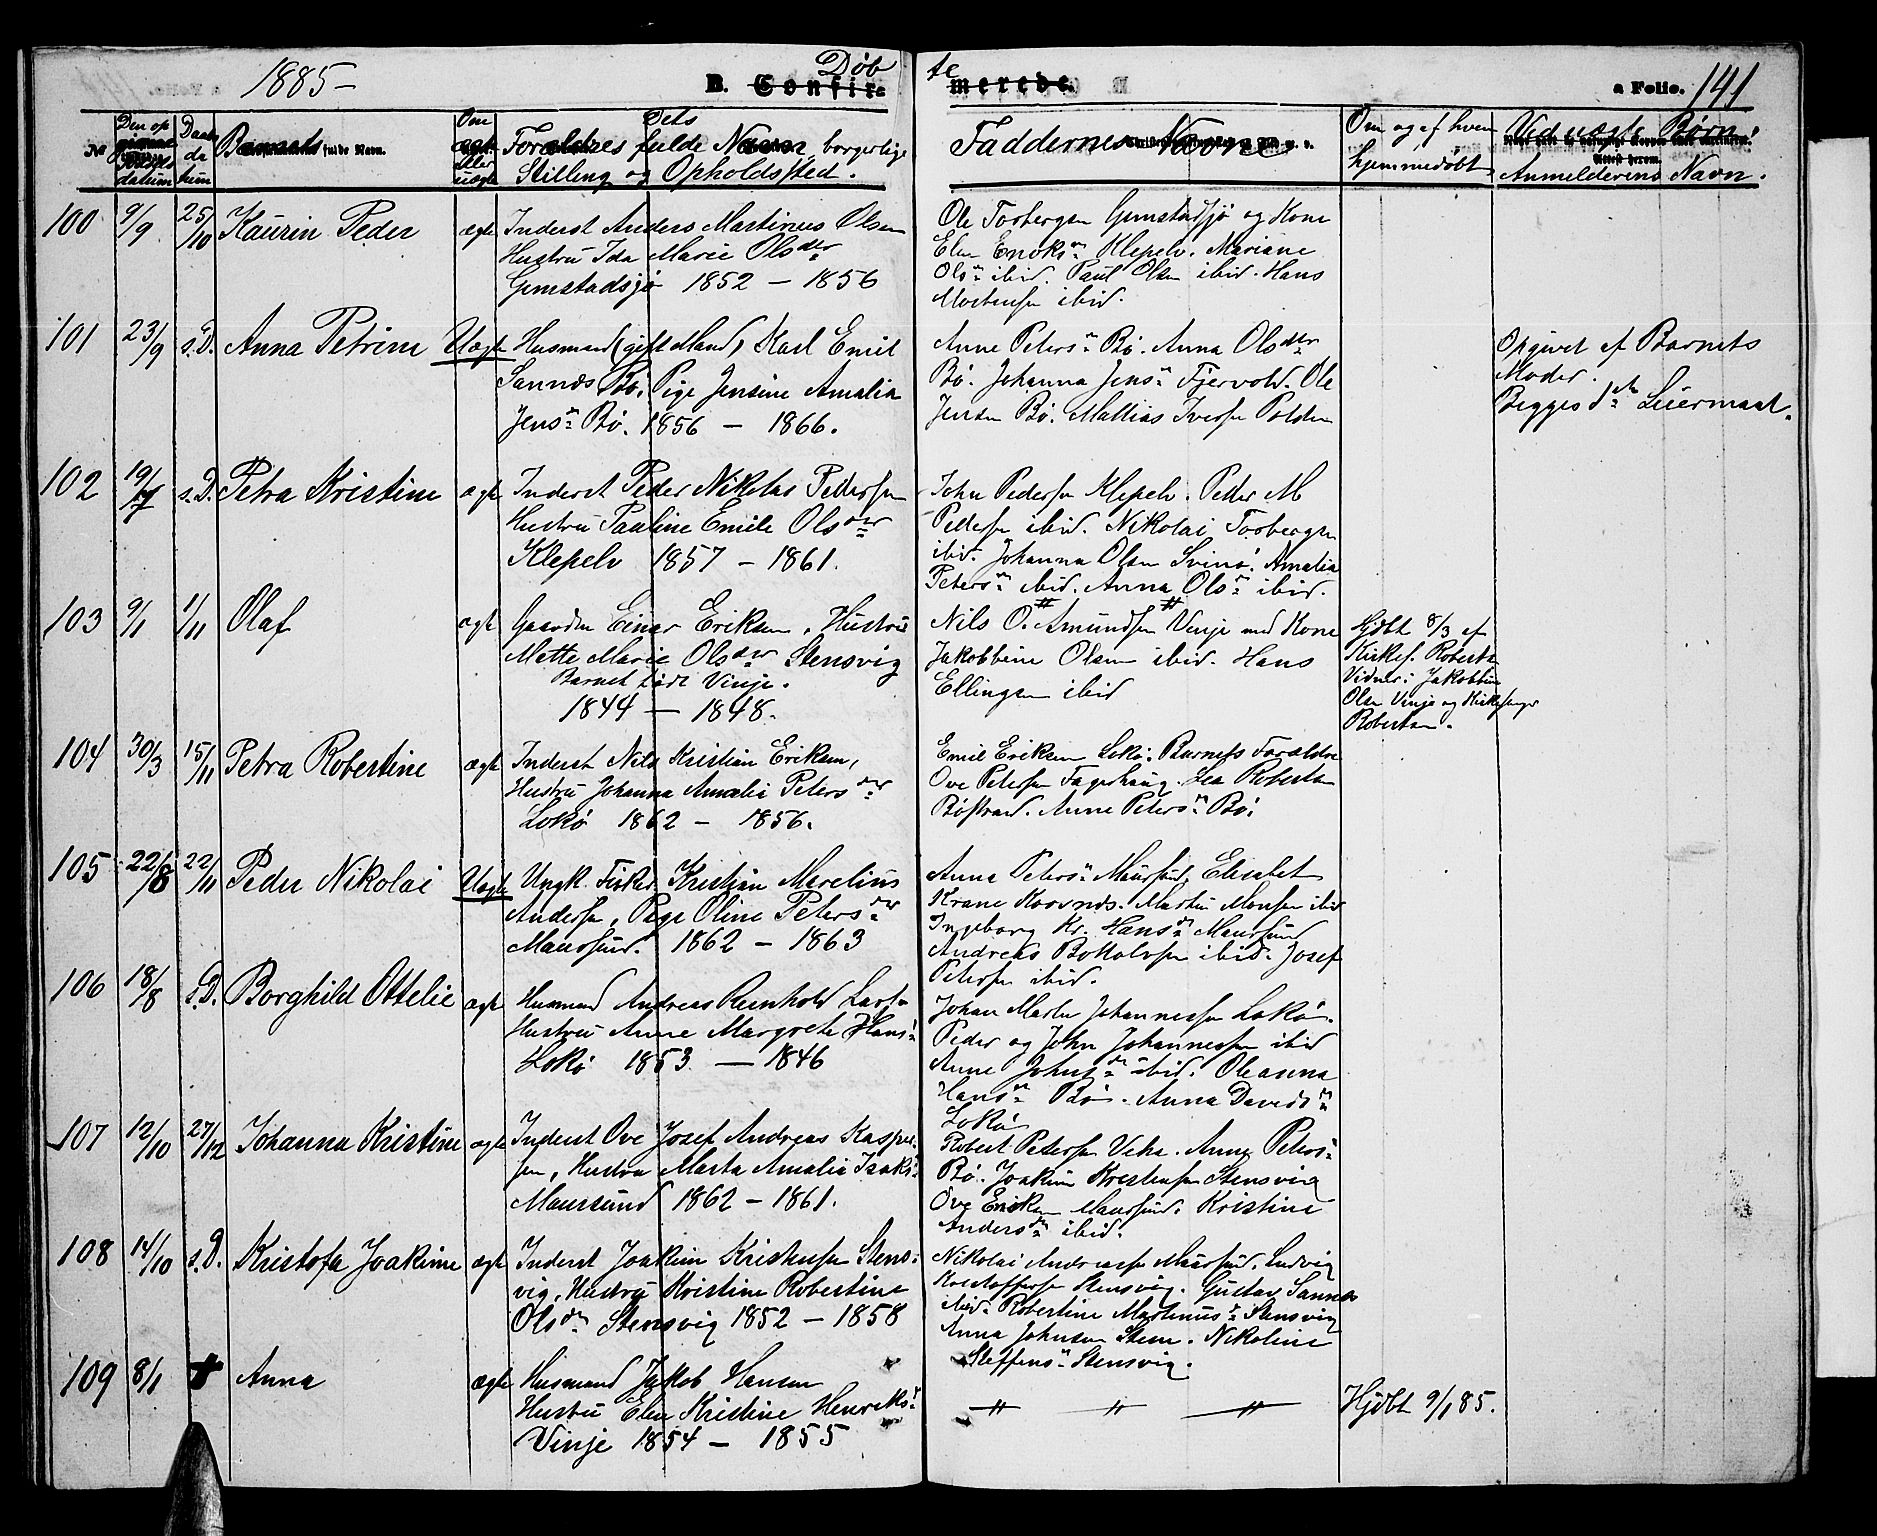 1885 –
Døb te
B. Confir= merede.
a Folio. 141
No
Barnets fulde Navn.
Forældres fulde Navn, borgerlige
Stilling og Opholdssted.
Faddernes Navne
Om og af hvem
hjemmedøbt
Ved uægte Børn:
Anmelderens Navn.
100 9/9 25/10 Kaurin Peder ægte Inderst Anders Martinus Olsen
Hustru Ida Marie Olsdtr
Gimstadsjø 1852 – 1856
Ole Torbergsen Gimstadsjø og Kone
Elen Enoksn Klepelv. Mariane
Olsn ibid. Paul Olsen ibid. Hans
Mortensen ibid.
101 23/9 s.D. Anna Petrine Uægte Husmand (gift Mand) Karl Emil
Sannæs Bø, Pige Jensine Amalia
Jensn Bø. 1856 – 1866.
Anne Petersn Bø. Anna Olsdtr
Bø. Johanna Jensn Fjervold. Ole
Jensen Bø. Mathias Iversen Polden
Opgivet af Barnets
Moder.
Begges 1ste Leiermaal.
102 19/7 s.D. Petra Kristine ægte Inderst Peder Nikolai Pedersen
Hustru Pauline Emile Olsdtr
Klepelv 1857 – 1861.
John Pedersen Klepelv. Peder M
Pedersen ibid. Nikolai Torbergsen
ibid. Johanna Olsen Svinø. Amalia
Petersn ibid. Anna Olsn ibid.
103 9/1 1/11 Olaf ægte Gaardm Einar Eriksen, Hustru
Mette Marie Olsdtr Stensvig
Barnet født Vinje.
1844 – 1848.
Nils O. Amundsen Vinje med Kone
Jakobbine Olsen ibid. Hans
Ellingsen ibid
Hjdbt 8/3 af
Kirkes. Roberts
Vidner: Jakobbine
Olsen Vinje og Kirkesanger
Robertsen.
104 30/3 15/11 Petra Robertine ægte Inderst Nils Kristian Eriksen,
Hustru Johanna Amalie Petersdtr
Lokø 1862 – 1856.
Emil Eriksen Lokø. Barnets Forældre
Ove Petersen Fagerhaug. Lea Roberts
Bøstrand. Anne Petersn Bø.
105 22/8 22/11 Peder Nikolai Uægte Ungk. Fisker Kristian Marelius
Andersen, Pige Oline Petersdtr
Maursund. 1862 – 1863
Anna Petersn Maursund. Elisabet
Krane Kornæs. Martin Monsen ibid
Ingeborg Kr. Hansdn Maursund
Andreas Bottolvsen ibid. Josef
Petersen ibid.
106 18/8 s.D. Borghild Ottelie ægte Husmand Andreas Reinhold Lars
Hustru Anne Margrete Hans
Lokø 1853 – 1846
Johan Martin Johannessen Lokø.
Peder og John Johannessen ibid
Anne Johnsdn ibid. Oleanna
Hansn Bø. Anna Davidsn
Lokø
107 12/10 27/12 Johanna Kristine ægte Inderst Ove Josef Andreas Kasper=
sen, Hustru Marta Amalie Isaks
Maursund 1862 – 1861.
Robert Petersen Veha. Anne Peters
Bø. Joakim Kristensen Stensvig
Ove Eriksen Maursund. Kristine
Andersdn ibid.
108 14/10 s.D. Kristofa Joakime ægte Inderst Joakim Kristensen Stens=
vig, Hustru Kristine Robertine
Olsdn Stensvig 1852 – 1858
Nikolai Andreassen Maursund. Ludvig
Kristoffersen Stensvig. Gustav Sannæs
ibid. Robertine Martinus Stensvig
Anna Johnsen Stene. Nikoline
Steffensn Stensvig.
109 8/1 Anna ægte Husmand Jakob Hansen
Hustru Elen Kristine Henriks
Vinje 1854 – 1855
–"– –"– –"–
Hjdbt 9/1 85.